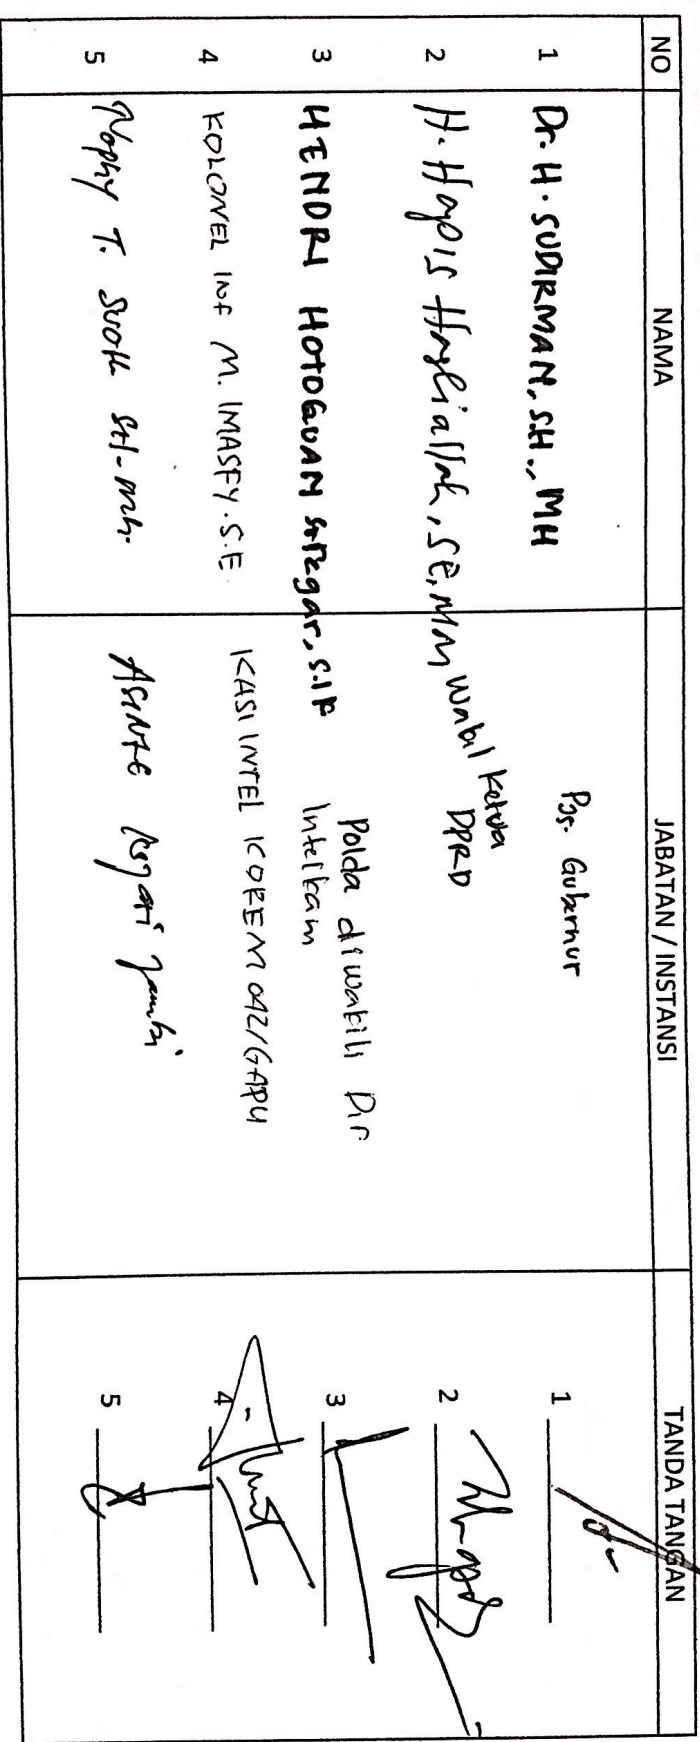 NO NAMA JABATAN / INSTANSI TANDA TANGAN
1 Dr. H. SUDIRMAN, S.H., MH Pjs. Gubernur 1
2 H. Hapis Hasbiallah, SE, MM Wakil Ketua 2
DPRD
3 HENDRI HOTOGUAN Siregar, S.IK Polda diwakili Dir 3
Intelkam
4 KOLONEL INF M. IMASFY. S.E KASI INTEL KOREM 042/GAPU 4
5 Nophy T. SH. MH. ASINTEL Jambi 5